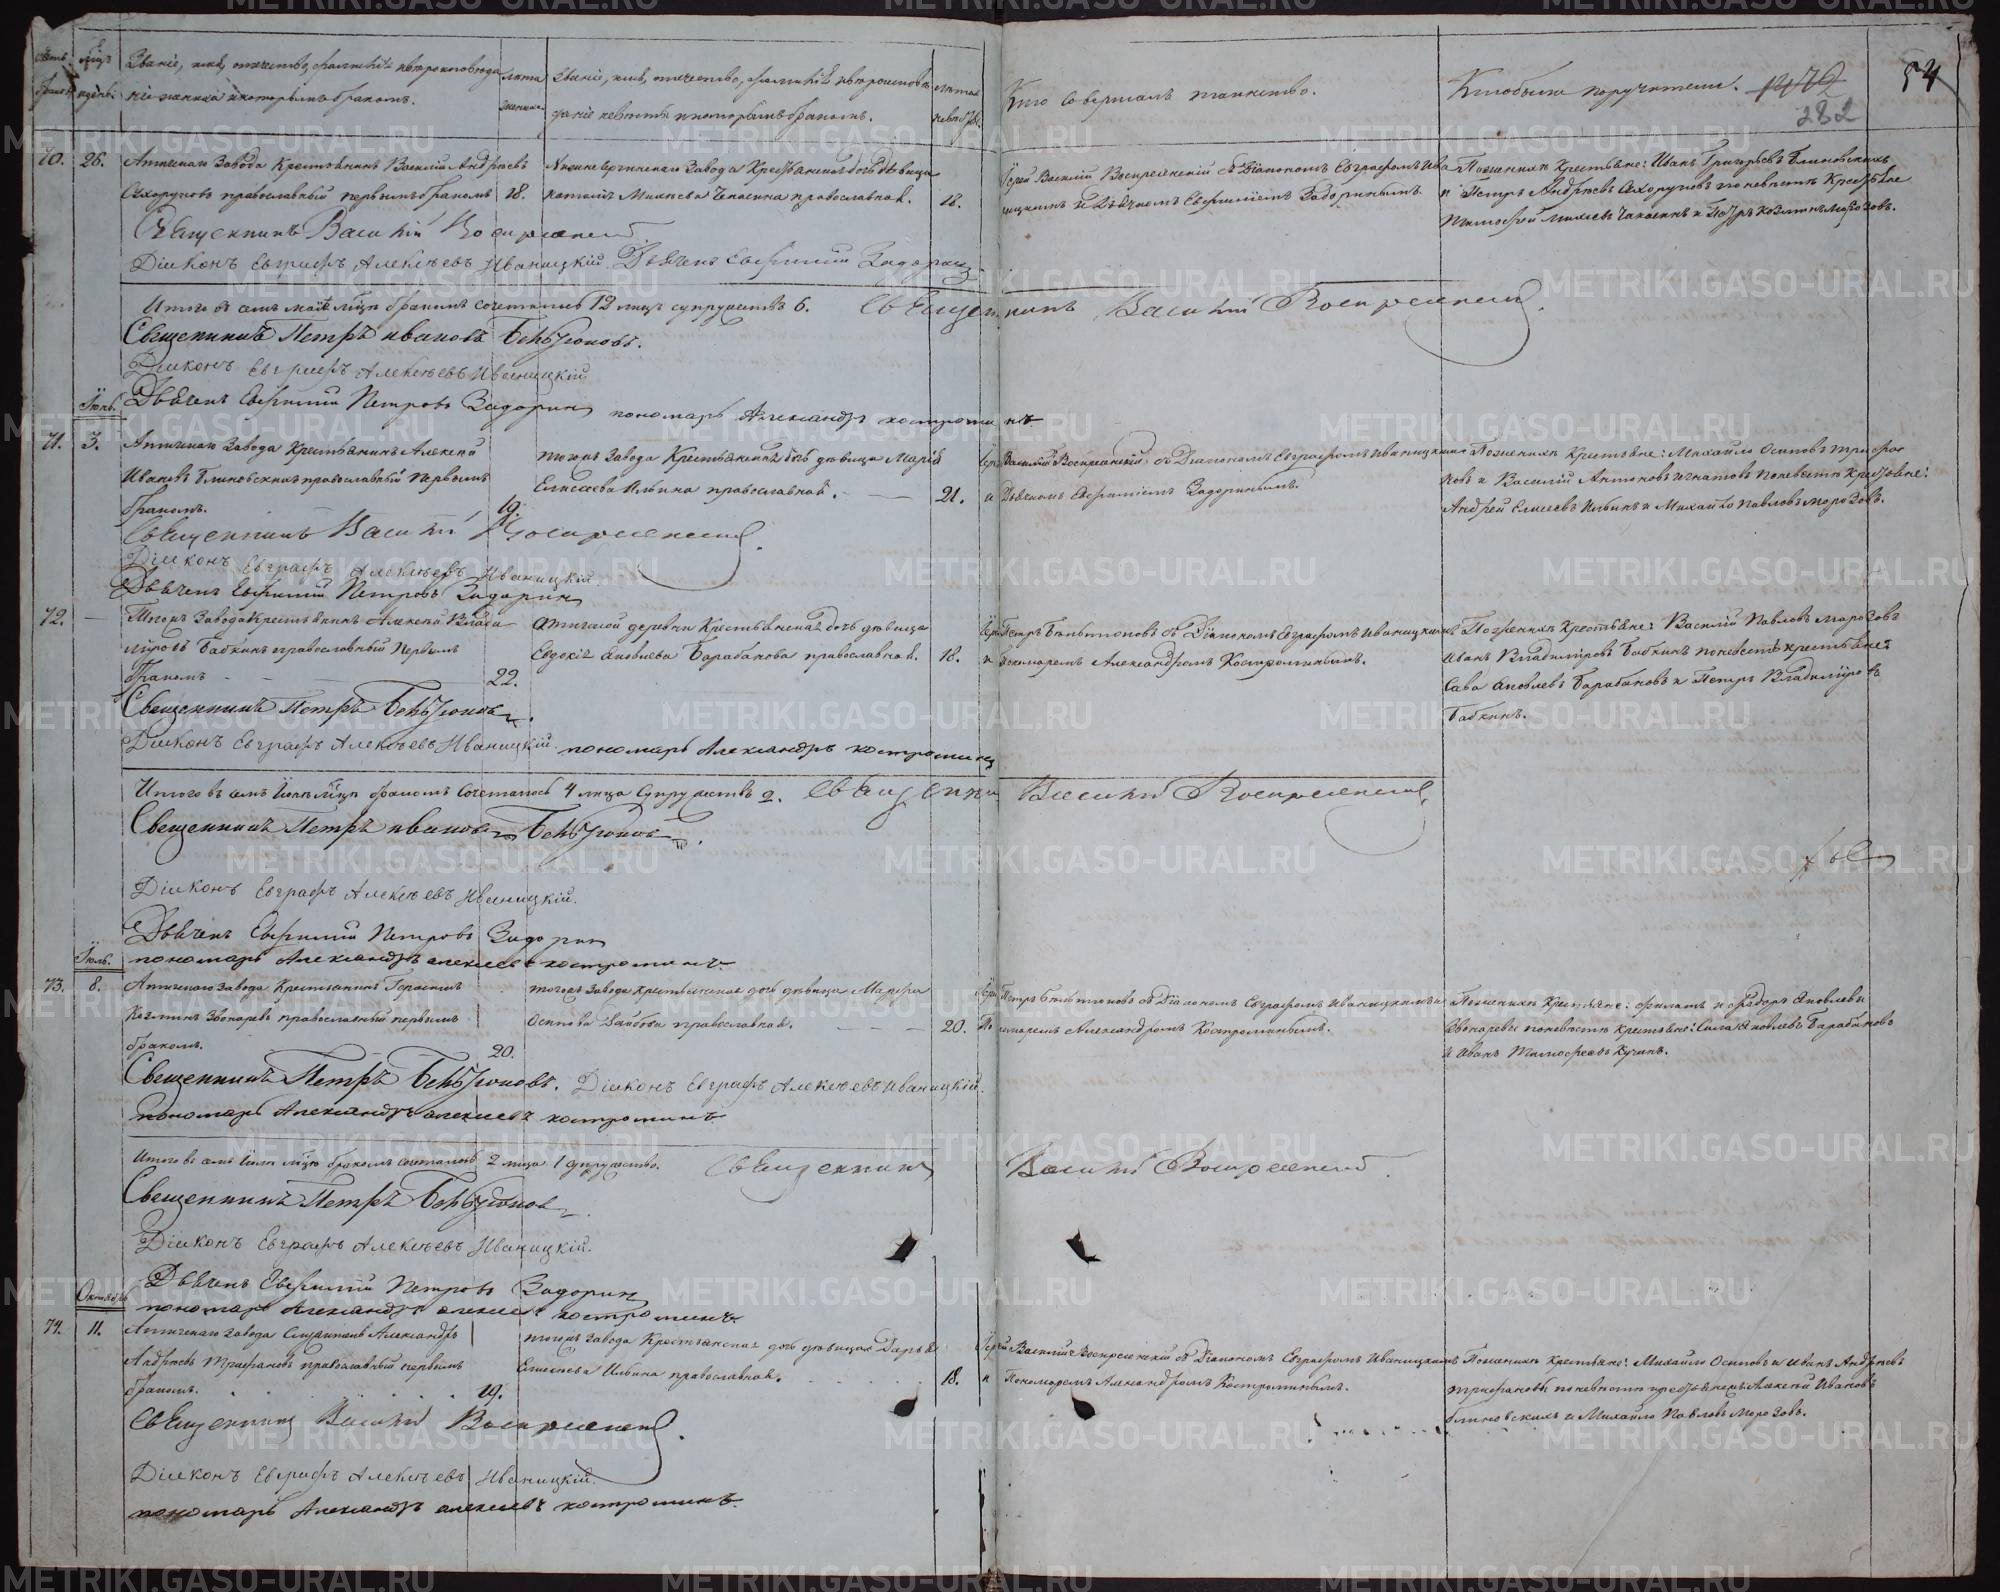 Званіе, имя, отчество, фамилія и вѣроисповѣда
ніе жениха и которымъ бракомъ.
лѣта
жениха.
Званіе, имя, отчество, фамилія и вѣроисповѣ
даніе невѣсты и которымъ бракомъ.
лѣта
невѣсты.
Кто совершалъ таинство.
Кто были поручители.
1472
282
54
70. 26.
Атигскаго Завода Крестьянинъ Василій Андреевъ
Сахоруповъ православный первымъ бракомъ 18.
Завода
дѣвица
Михеева православная. 18.
Іерей Василій Воскресенскій съ Діакономъ Евграфомъ Ива
ницкимъ и Дьячкомъ Евфиміемъ Задоринымъ.
По женихѣ Крестьяне: Иванъ Григорьевъ Блиновскихъ
и Петръ Андреевъ Сахоруповъ по невѣстѣ Крестьяне
Священникъ Василій Воскресенскій
Діаконъ Евграфъ Алексѣевъ Иваницкій. Дьячекъ Евфимій Задоринъ
Итого въ семъ маіе мѣсяцѣ бракомъ сочетались 12 лицъ супружествъ 6. Священникъ Василій Воскресенскій.
Священникъ Петръ Ивановъ Бѣльтюковъ.
Діаконъ Евграфъ Алексѣевъ Иваницкій
Дьячекъ Евфимій Петровъ Задоринъ пономарь Александръ костроминъ
Іюнь.
71. 3.
Атигскаго Завода Крестьянинъ Алексѣй
Ивановъ Блиновскихъ православный первымъ
бракомъ. 19.
тогожъ Завода Крестьянская дочь дѣвица Марія
Елисеева Ильина православная. 21.
Іерей Василій Воскресенскій съ Діакономъ Евграфомъ Иваницкимъ
и Дьячкомъ Евфиміемъ Задоринымъ.
По женихѣ Крестьяне: Михайло Осиповъ трифо
новъ и Василій Антоновъ Игнатовъ по невѣстѣ Крестьяне:
Андрей Елисеевъ Ильинъ и Михайло Павловъ Морозовъ.
Священникъ Василій Воскресенскій.
Діаконъ Евграфъ Алексѣевъ Иваницкій.
Дьячекъ Евфимій Петровъ Задоринъ
72. —
Тогожъ Завода Крестьянинъ Алексѣй Влади
міровъ Бабкинъ православный первымъ
бракомъ 22.
Атигской деревни Крестьянская дочь дѣвица
Евдокія Яковлева Барабанова православная. 18.
Іерей Петръ Бѣльтюковъ съ Діакономъ Евграфомъ Иваницкимъ
и Пономаремъ Александромъ Костроминымъ.
По женихѣ Крестьяне: Василій Павловъ Морозовъ
Иванъ Владиміровъ Бабкинъ по невѣстѣ крестьяне:
Сава Яковлевъ Барабановъ и Петръ Владиміровъ
Бабкинъ.
Священникъ Петръ Бѣльтюковъ.
Діаконъ Евграфъ Алексѣевъ Иваницкій. пономарь Александръ костроминъ
Итого въ семъ Іюнѣ мѣсяцѣ бракомъ сочеталось 4 лица Супружествъ 2. Священникъ Василій Воскресенскій.
Священникъ Петръ Ивановъ Бѣльтюковъ.
Діаконъ Евграфъ Алексѣевъ Иваницкій.
Дьячекъ Евфимій Петровъ Задоринъ
пономарь Александръ алексеевъ костроминъ.
Іюль.
73. 8.
Атигскаго Завода Крестьянинъ Герасимъ
Козминъ Звонаревъ православный первымъ
бракомъ. 20.
тогожъ Завода Крестьянская дочь дѣвица Мавра
Осипова православная. 20.
Іерей Петръ Бѣльтюковъ съ Діакономъ Евграфомъ Иваницкимъ и
Пономаремъ Александромъ Костроминымъ.
По женихѣ Крестьяне: Филатъ и Федоръ Яковлевы
Звонаревы по невѣстѣ крестьяне: Сава Яковлевъ Барабановъ
и Иванъ Тимофеевъ Кучинъ.
Священникъ Петръ Бѣльтюковъ. Діаконъ Евграфъ Алексѣевъ Иваницкій.
пономарь Александръ алексеевъ костроминъ.
Итого въ семъ Іюлѣ мѣсяцѣ бракомъ сочеталось 2 лица 1 супружество. Священникъ Василій Воскресенскій.
Священникъ Петръ Бѣльтюковъ.
Діаконъ Евграфъ Алексѣевъ Иваницкій.
Дьячекъ Евфимій Петровъ Задоринъ
пономарь Александръ алексеевъ костроминъ.
Октябрь
74. 11.
Атигскаго завода Александръ
Андреевъ Трифановъ православный первымъ
бракомъ. 19.
тогожъ Завода Крестьянская дочь дѣвица Дарья
Елисеева Ильина православная. 18.
Іерей Василій Воскресенскій съ Діакономъ Евграфомъ Иваницкимъ
и Пономаремъ Александромъ Костроминымъ.
По женихѣ Крестьяне: Михайло Осиповъ и Иванъ Андреевъ
трифановы по невѣстѣ крестьяне: Алексѣй Ивановъ
блиновскихъ и Михайло Павловъ Морозовъ.
Священникъ Василій Воскресенскій.
Діаконъ Евграфъ Алексѣевъ Иваницкій.
пономарь Александръ алексеевъ костроминъ.
METRIKI.GASO-URAL.RU